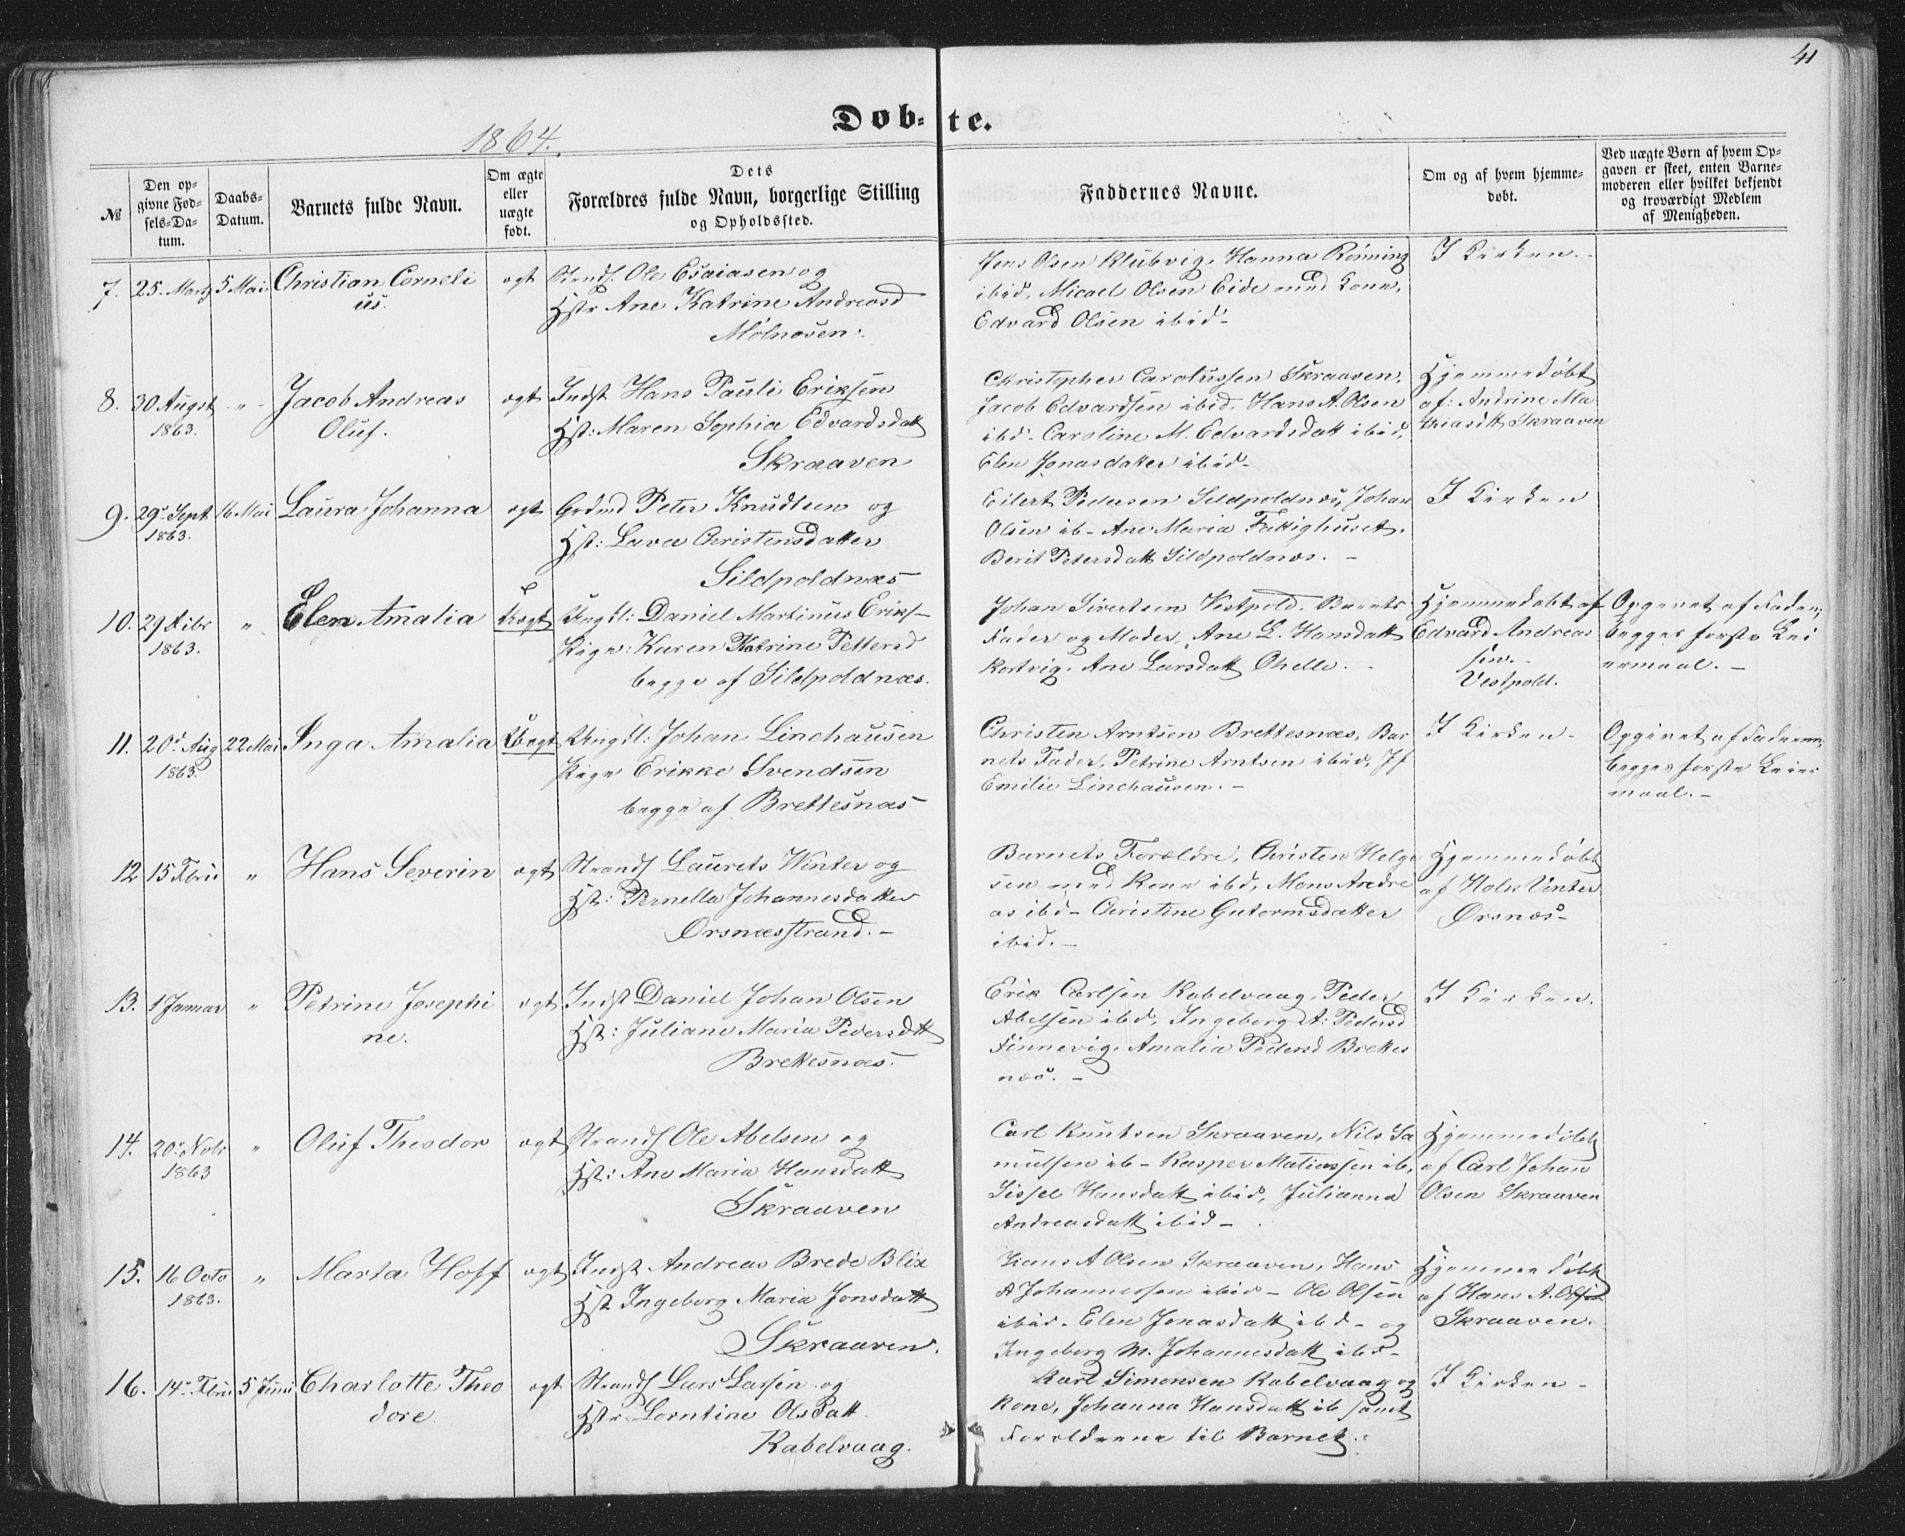 41
Døb-te.
1864.
№
Den op-
givne Fød-
sels-Da-
tum.
Daabs-
Datum.
Barnets fulde Navn.
Om ægte
eller
uægte
født.
Dets
Forældres fulde Navn, borgerlige Stilling
og Opholdssted.
Faddernes Navne.
Om og af hvem hjemme-
døbt.
Ved uægte Børn af hvem Op-
gaven er skeet, enten Barne-
moderen eller hvilket bekjendt
og troværdigt Medlem
af Menigheden.
7. 25. Martz 5 Mai Christian Corneli
us.
ægt
Strands. Ole Esaiasen og
Hstr Ane Katrine Andreasd
Mølnosen.
Jens Olsen Klubvig, Hanna Rønning
ibid, Micael Olsen Eide med Kone,
Edvard Olsen ibid-
I Kirken.
8. 30 August
1863.
" Jacob Andreas
Oluf.
ægt
Indst Hans Pauli Eriksen
Hst: Maren Sophia Edvardsdatt
Skraaven
Christopher Carolussen Skraaven,
Jacob Edvardsen ibid, Hans A. Olsen
ibd- Caroline M. Edvardsdatt ibid,
Elen Jonasdatter ibid-
Hjemmedøbt
af: Andrine Ma
thiasdtt Skraaven
9. 29. Sept
1863.
16 Mai Laura Johanna
ægt
Grdmd Peter Knudtsen og
Hst: Lava Christensdatter
Sildpoldnæs
Eilert Pedersen Sildpoldnæs, Johan
Olsen ib- Ane Maria Fattighuset.
Berit Petersdatt Sildpoldnæs. -
I Kirken
10. 29 Febr
1863.
" Elen Amalia
Uægt
Ungkl: Daniel Martinus Eriks-
Pige: Karen Katrine Pettersd
begge af Sildpoldnæs.
Johan Sivertsen Vestpold. Barnets
Fader og Moder, Ane L. Hansdatt
Kortvig. Ane Larsdatt Ohelle.
Hjemmedøbt af
Edvard Andreas
sen.
Vestpold.
Opgivet af Faderen;
begges første Lei
ermaal. -
11. 20d Aug
1863.
22 Mai Inga Amalia
Uægt
Ungkl: Johan Linchausen
Pige Erikke Svendsen
begge af Brettesnæs
Christen Arntsen Brettesnæs, Bar
nets Fader, Petrine Arntsen ibid, Jf
Emilie Linchausen. -
I Kirken-
Opgivet af Faderen,
begges første Leier
maal. -
12 15 Febru " Hans Severin
ægt
Strands Laurets Winter og
Hst: Pernella Johannesdatter
Ørsnæsstrand. -
Barnets Forældre, Christen Helge
sen med Kone ibd, Mons Andre
as ibd- Christine Gutormsdatter
ibid. -
Hjemmedøbt
af Hole Venter
Ørsnæs-
13. 1 Januar " Petrine Josephi
ne.
ægt
Indst Daniel Johan Olsen
Hst: Juliane Maria Pedersdtt
Brettesnæs.
Erik Carlsen Kabelvaag, Peder
Abelsen ibd, Ingeborg A: Pedersd
Finnevig. Amalia Pedersd Brettes
næs. -
I Kirken.
14. 20. Novbr
1863
" Oluf Theodor
ægt
Strands Ole Abelsen og
Hst: Ane Maria Hansdatt
Skraaven
Carl Knutsen Skraaven, Nils Sa
muelsen ib- Kasper Matiassen ib,
Sissel Hansdatt ibid, Julianna
Andreasdatt ibid-
Hjemmedøbt
af Carl Johan
Olsen Skraaven
15. 16 Octo
1863.
" Marta Hoff
ægt
Indst Andreas Brede Blix
Hst Ingeborg Maria Jonsdatt
Skraaven.
Hans A Olsen Skraaven, Hans
A Johannessen ibid- Ole Olsen
ibid- Elen Jonasdatt ibd- og
Ingeborg M. Johannesdatt ibd-
Hjemmedøbt
af Hans A. Olsen
Skraaven.
16. 14. Febru 5 Juni Charlotte Theo
dore.
ægt
Strands Lars Larsen og
Hstr Lorntine Ols Datt.
Kabelvaag.
Karl Simonsen Kabelvaag og
Kone, Johanna Hansdatt ib samt
Forældrene til Barnet.
I Kirken-